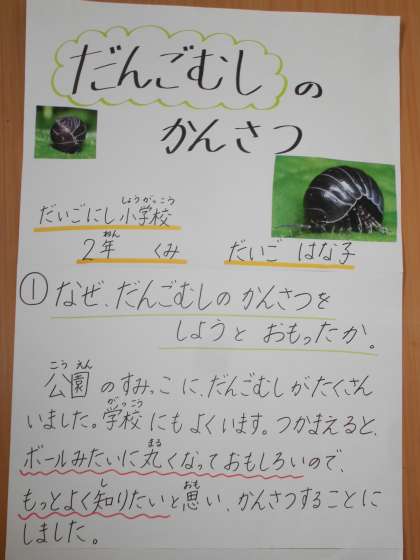 だんごむしの
かんさつ
しょうがっこう
だいごにし小学校
ねん
2年 くみ
だいご はな子
① なぜ、だんごむしのかんさつを
しようと おもったか。
こう えん
公園のすみっこに、だんごむしがたくさん
がっこう
いました。学校にもよくいます。つかまえると、
まる
ボールみたいに丸くなっておもしろいので、
し おも
もっとよく知りたいと思い、かんさつすることに
しました。